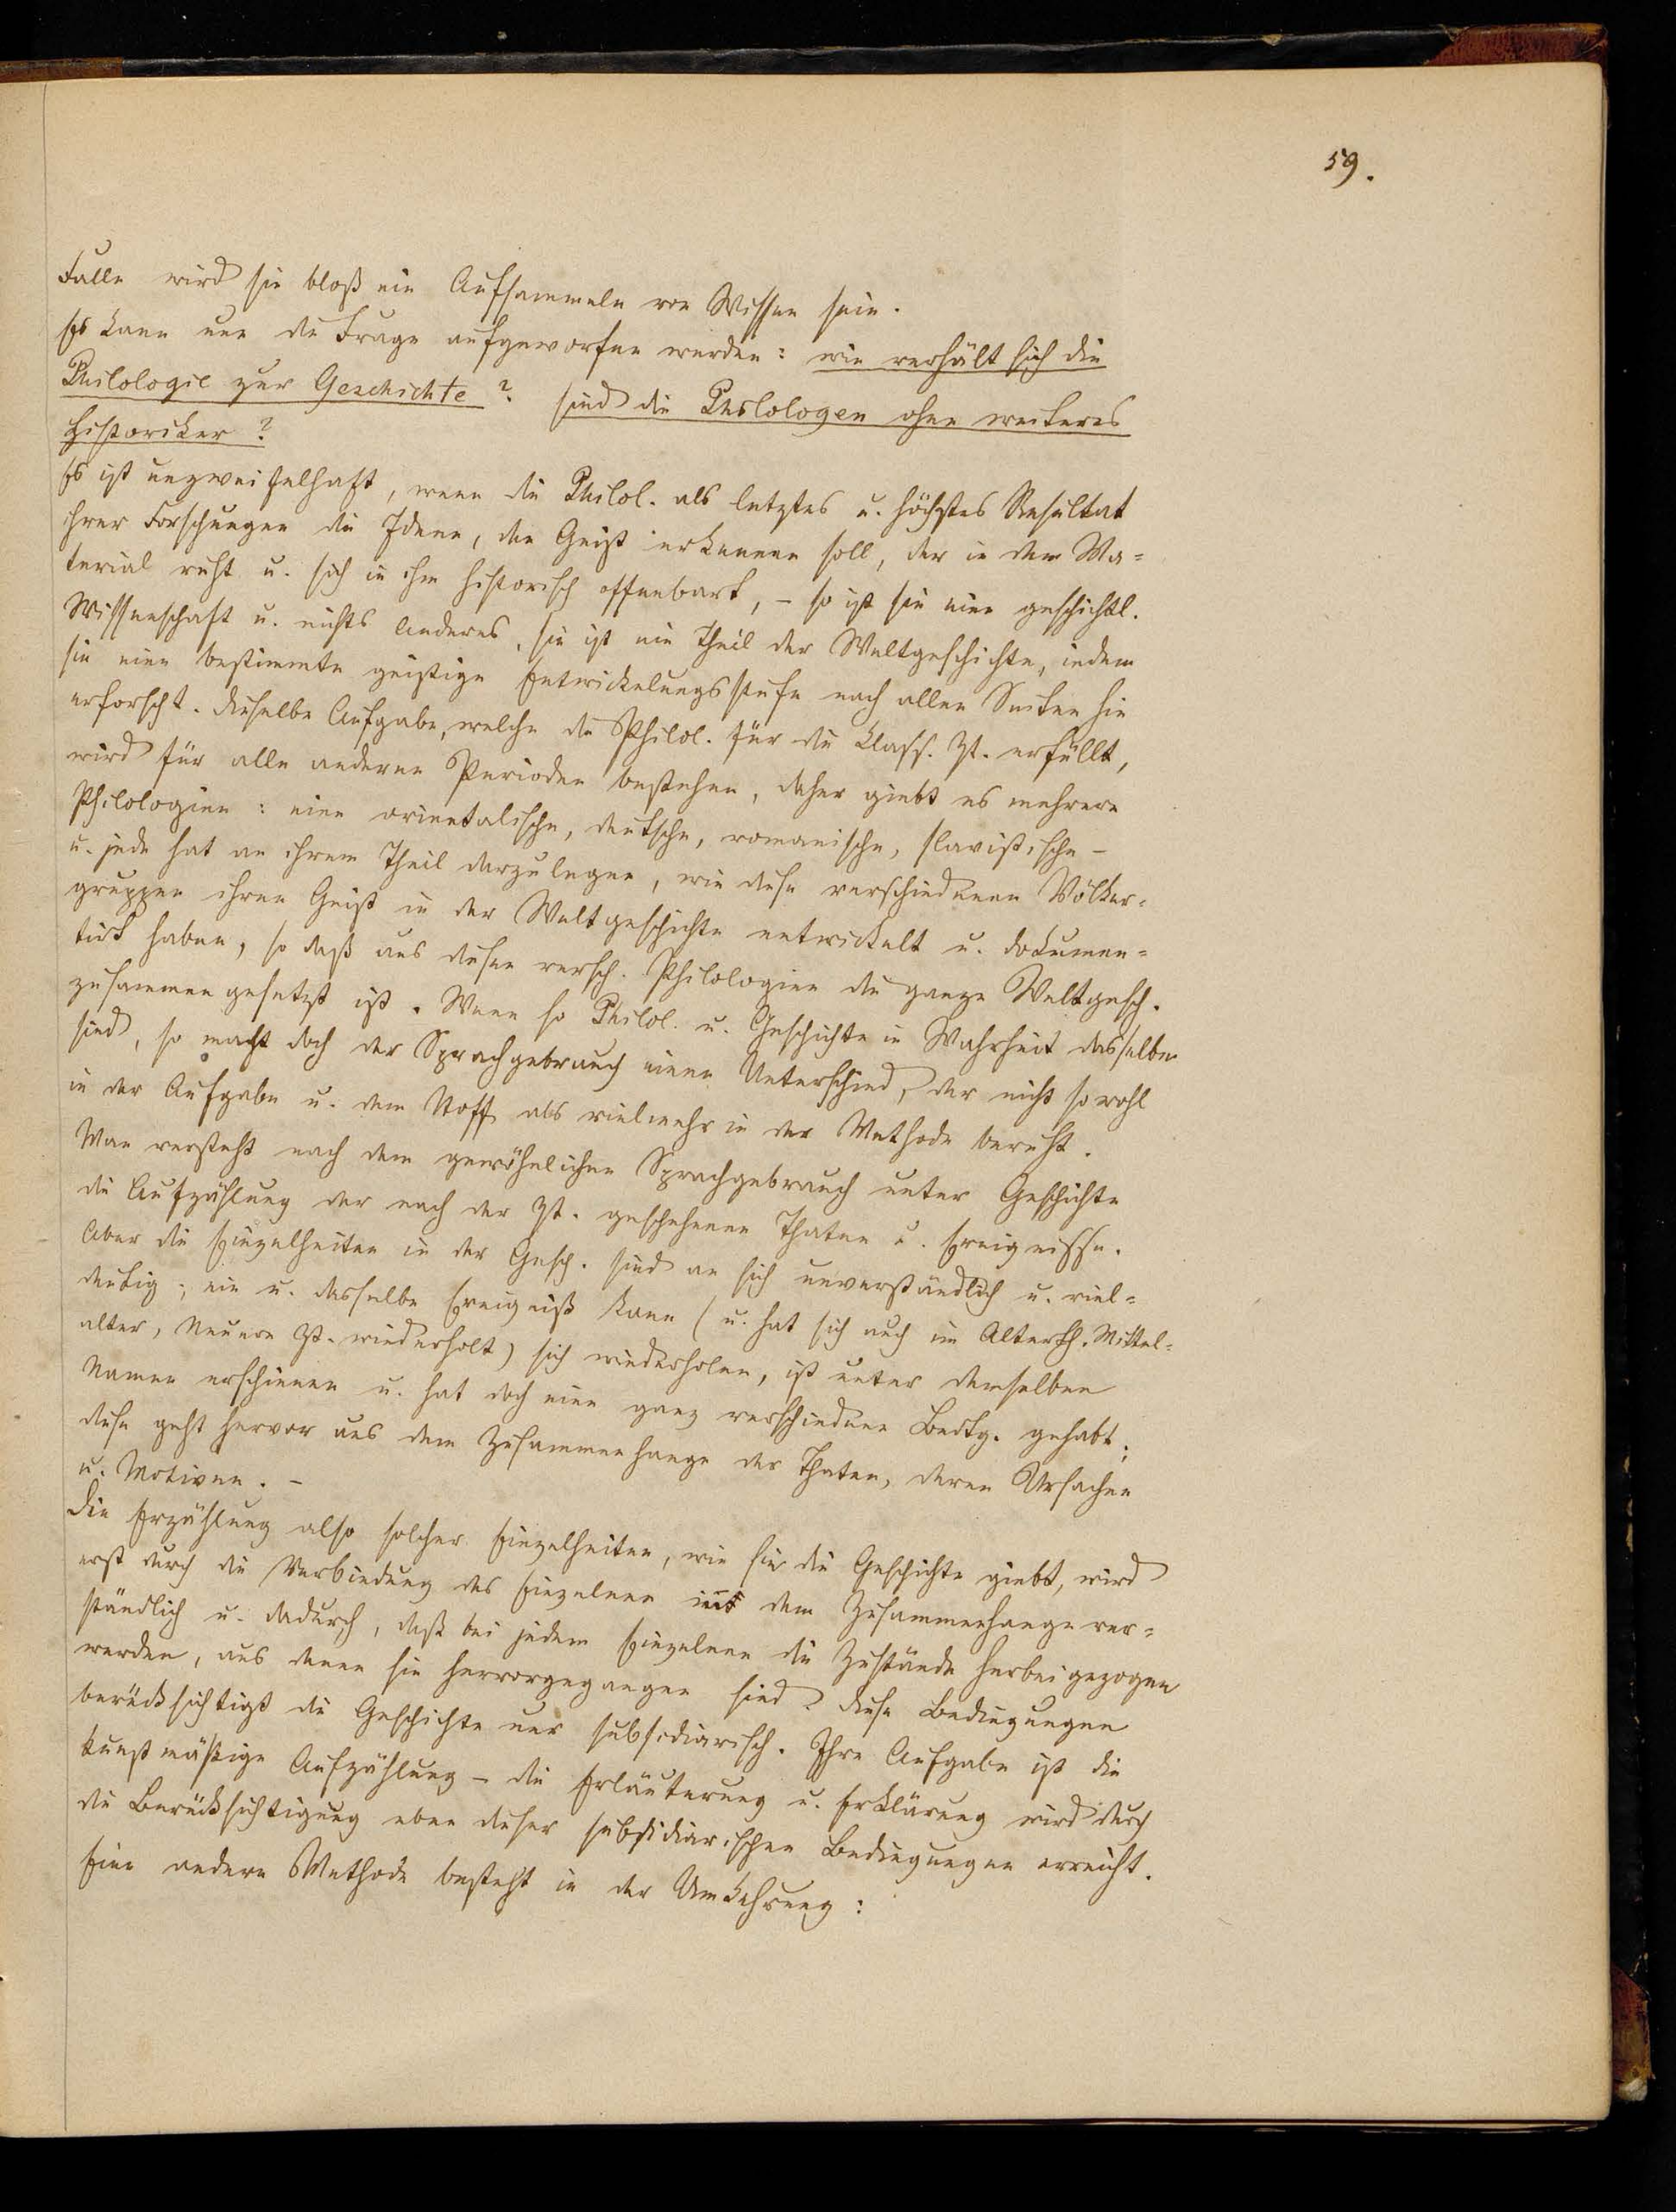 59.
Falle wird sie bloß ein Aufsammeln von Wissen sein.
Es kann nun die Frage aufgeworfen werden: wie verhält sich die
Philologie zur Geschichte? sind die Philologen ohne weiteres
Historiker?
Es ist unzweifelhaft, wenn die Philol. als letztes u. höchstes Resultat
ihrer Forschungen die Ideen, den Geist erkennen soll, der in dem Ma=
terial ruht u. sich in ihm historisch offenbart, – so ist sie eine geschichtl.
Wissenschaft u. nichts Anderes, sie ist ein Theil der Weltgeschichte, indem
sie eine bestimmte geistige Entwickelungsstufe nach allen Seiten hin
erforscht. Dieselbe Aufgabe, welche die Philol. für die klass. Zt. erfüllt,
wird für alle anderen Perioden bestehen, daher giebt es mehrere
Philologien: eine orientalische, deutsche, romanische, slavistische –
u. jede hat an ihrem Theil darzulegen, wie diese verschiedenen Völker=
gruppen ihren Geist in der Weltgeschichte entwickelt u. dokumen=
tirt haben, so daß aus diesen versch. Philologien die ganze Weltgesch.
zusammengesetzt ist. Wenn so Philol. u. Geschichte in Wahrheit dasselbe
sind, so macht doch der Sprachgebrauch einen Unterschied, der nicht sowohl
in der Aufgabe u. dem Stoff als vielmehr in der Methode beruht.
Man versteht nach dem gewöhnlichen Sprachgebrauch unter Geschichte
die Aufzählung der nach der Zt. geschehenen Thaten u. Ereignisse.
Aber die Einzelheiten in der Gesch. sind an sich unverständlich u. viel=
deutig; ein u. dasselbe Ereigniß kann (u. hat sich auch im Alterth. Mittel=
alter, Neuere Zt. wiederholt) sich wiederholen, ist unter demselben
Namen erschienen u. hat doch eine ganz verschiedene Bedtg. gehabt;
diese geht hervor aus dem Zusammenhange der Thaten, deren Ursachen
u. Motiven. –
Die Erzählung also solcher Einzelheiten, wie sie die Geschichte giebt, wird
erst durch die Verbindung des Einzelnen mit dem Zusammenhange ver=
ständlich u. dadurch, daß bei jedem Einzelnen die Zustände herbeigezogen
werden, aus denen sie hervorgegangen sind. Diese Bedingungen
berücksichtigt die Geschichte nur subsidiarisch. Ihre Aufgabe ist die
kunstmäßige Aufzählung – die Erläuterung u. Erklärung wird durch
die Berücksichtigung eben dieser subsidiarischen Bedingungen erreicht.
Eine andere Methode besteht in der Umkehrung: